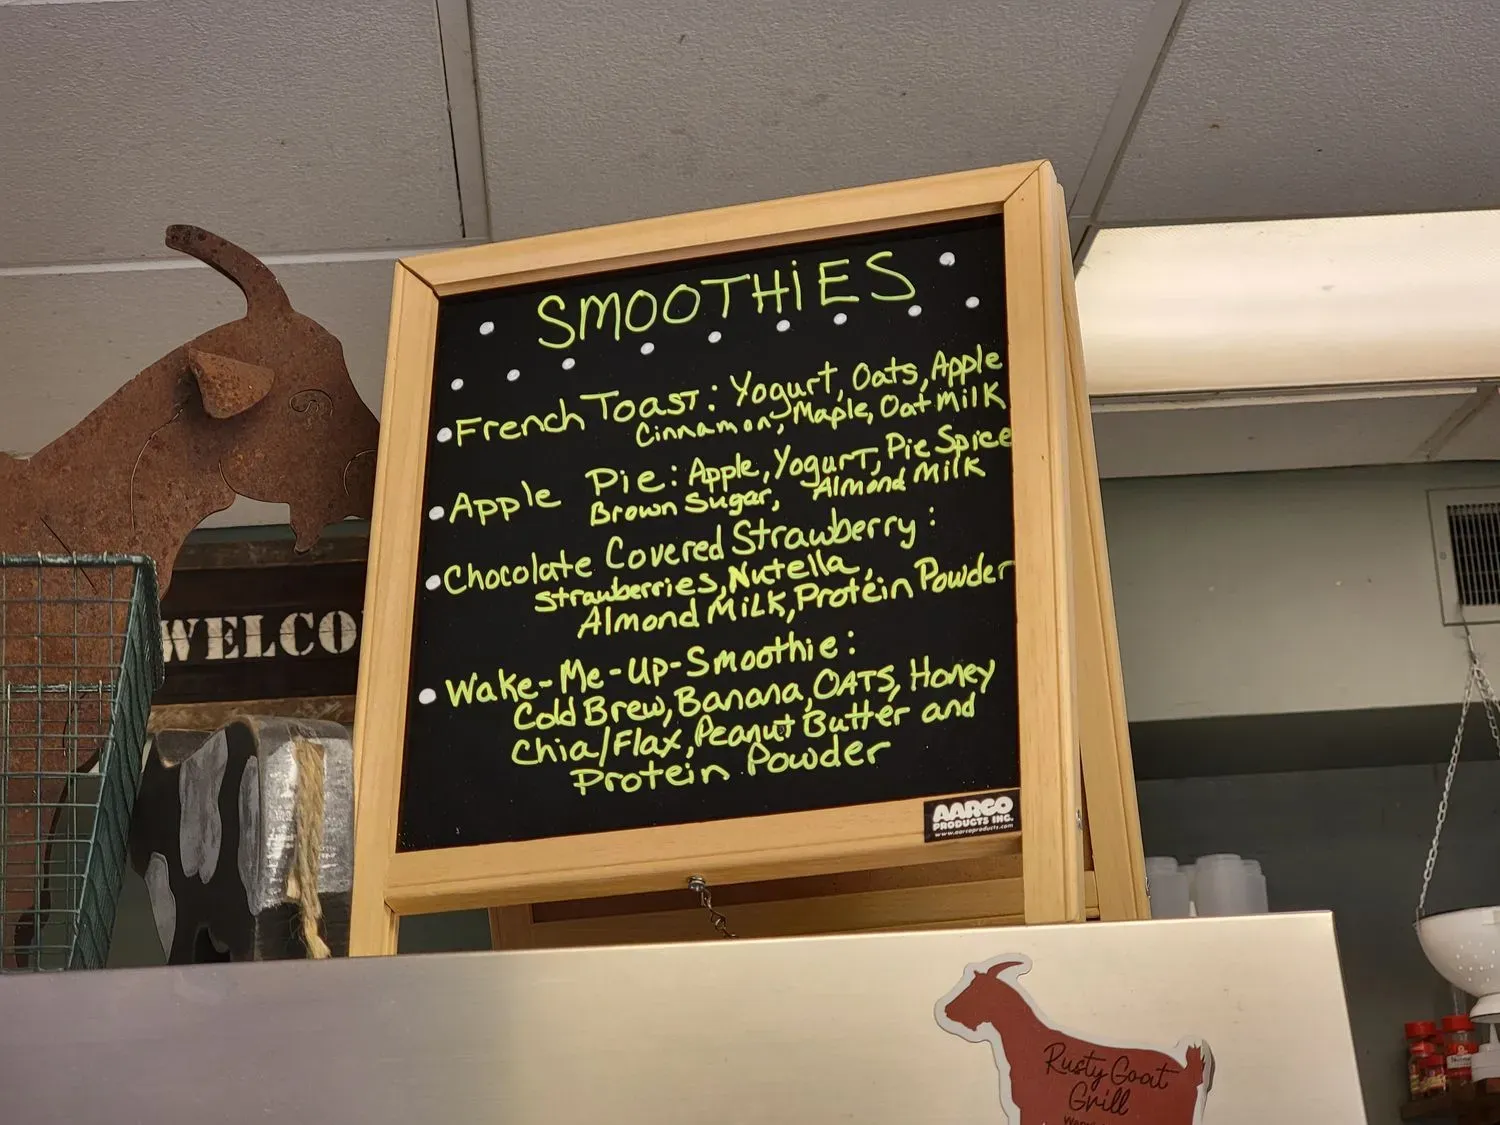 SMOOTHiES
French Toast: Yogurt, Oats, Apple
Cinnamon, Maple, Oat Milk
Apple Pie: Apple, Yogurt, Pie Spice
Brown Sugar, Almond Milk
Chocolate Covered Strawberry:
Strawberries, Nutella,
Almond Milk, Protein Powder
Wake-Me-Up-Smoothie:
Cold Brew, Banana, OATS, Honey
Chia/Flax, Peanut Butter and
Protein Powder
AARCO
PRODUCTS INC.
www.aarcoproducts.com
WELCO
Rusty Goat
Grill